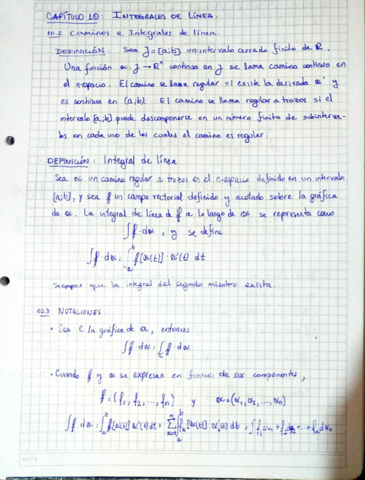 CAPÍTULO 10: INTEGRALES DE LÍNEA.
10.2 Caminos e Integrales de línea.
DEFINICIÓN: Sea J=[a;b] un intervalo cerrado finito de R.
Una función α: J → Rⁿ continua en J se llama camino continuo en
el n-espacio. El camino se llama regular si existe la derivada α' y
es continua en (a;b). El camino se llama regular a trozos si el
intervalo [a;b] puede descomponerse en un número finito de subinterva-
los en cada uno de los cuales el camino es regular.
DEFINICIÓN: Integral de línea
Sea α un camino regular a trozos en el n-espacio definido en un intervalo
[a;b], y sea f un campo vectorial definido y acotado sobre la gráfica
de α. La integral de línea de f a lo largo de α se representa como
∫f·dα, y se define
∫f·dα = ∫ₐᵇ f[α(t)]·α'(t) dt
siempre que la integral del segundo miembro exista.
10.3 NOTACIONES
• Sea C la gráfica de α, entonces
∫f·dα = ∫_C f·dα
• Cuando f y α se expresan en función de sus componentes,
f=(f₁, f₂, ..., fₙ) y α=(α₁, α₂, ..., αₙ)
∫f·dα = ∫ₐᵇ f[α(t)]·α'(t) dt = Σ ∫ₐᵇ fₖ[α(t)]·α'ₖ(t) dt = ∫f₁dα₁ + f₂ + ... + fₙdαₙ